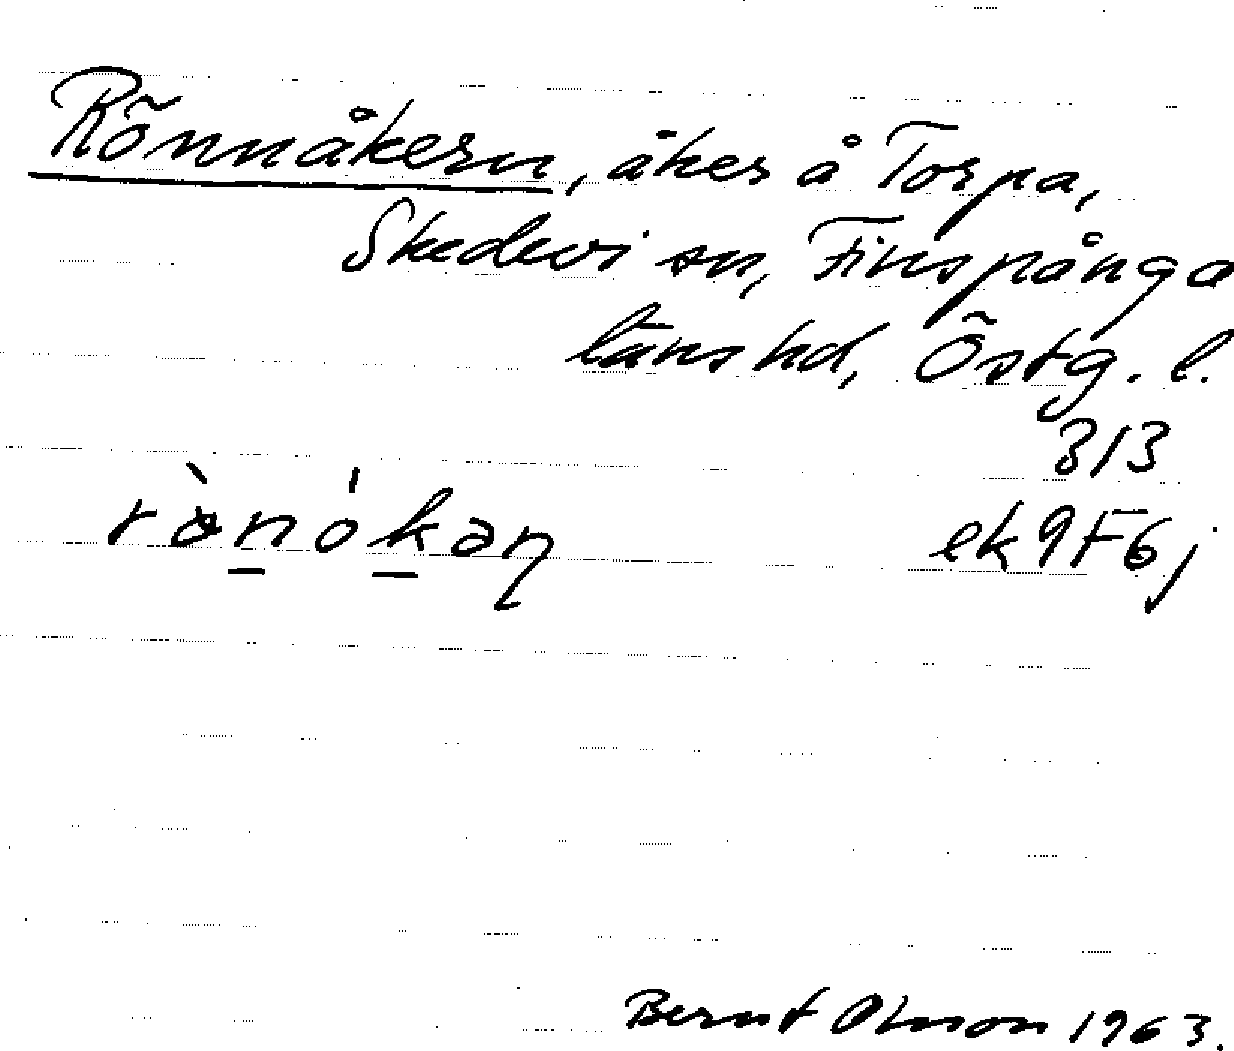 Rönnåkern, åker å Torpa,
Skedevi sn, Finspånga
läns hd, Östg. l.
313
rὸnókəη ek 9F6j
Bernt Olsson 1963.